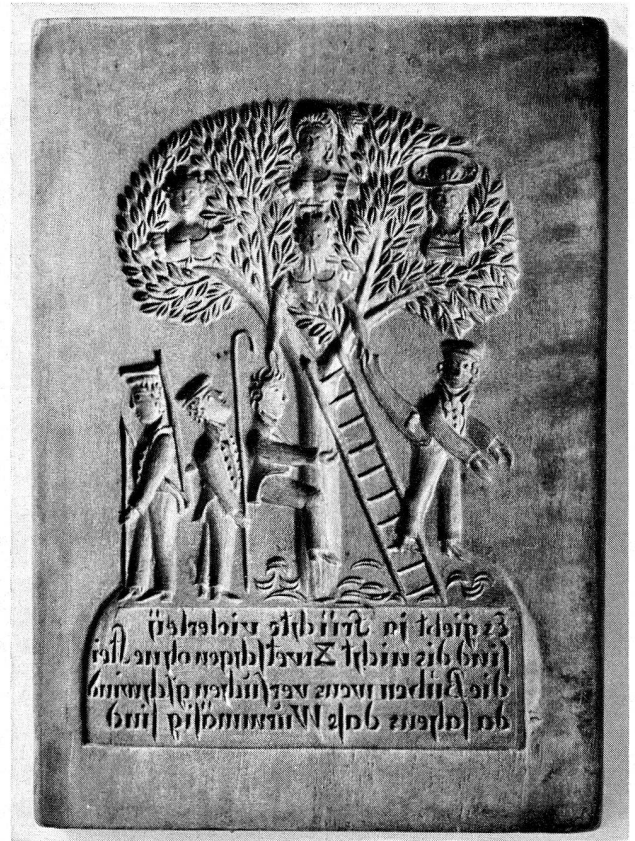 Es giebt ja Früchte vielerleÿ
sind dis nicht Zwetschgen ohne stei
die Buben wens versuchen gschwind
da sahens dass Wurmmäsig sind